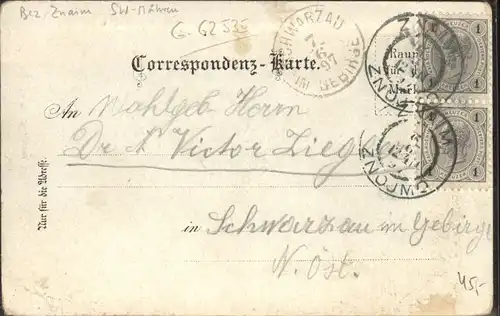 Bez. Znaim Süd-Mähren
G. 62 535
SCHWARZAU
IM GEBIRGE
97
ZNAIM
ZNOJMO
Correspondenz-Karte.
Raum
für
Mark
1
1
An Wohlgeb Herrn
Dr Victor
Nur für die Adresse.
in Schwarzau im Gebirge
N. Öst.
45,-